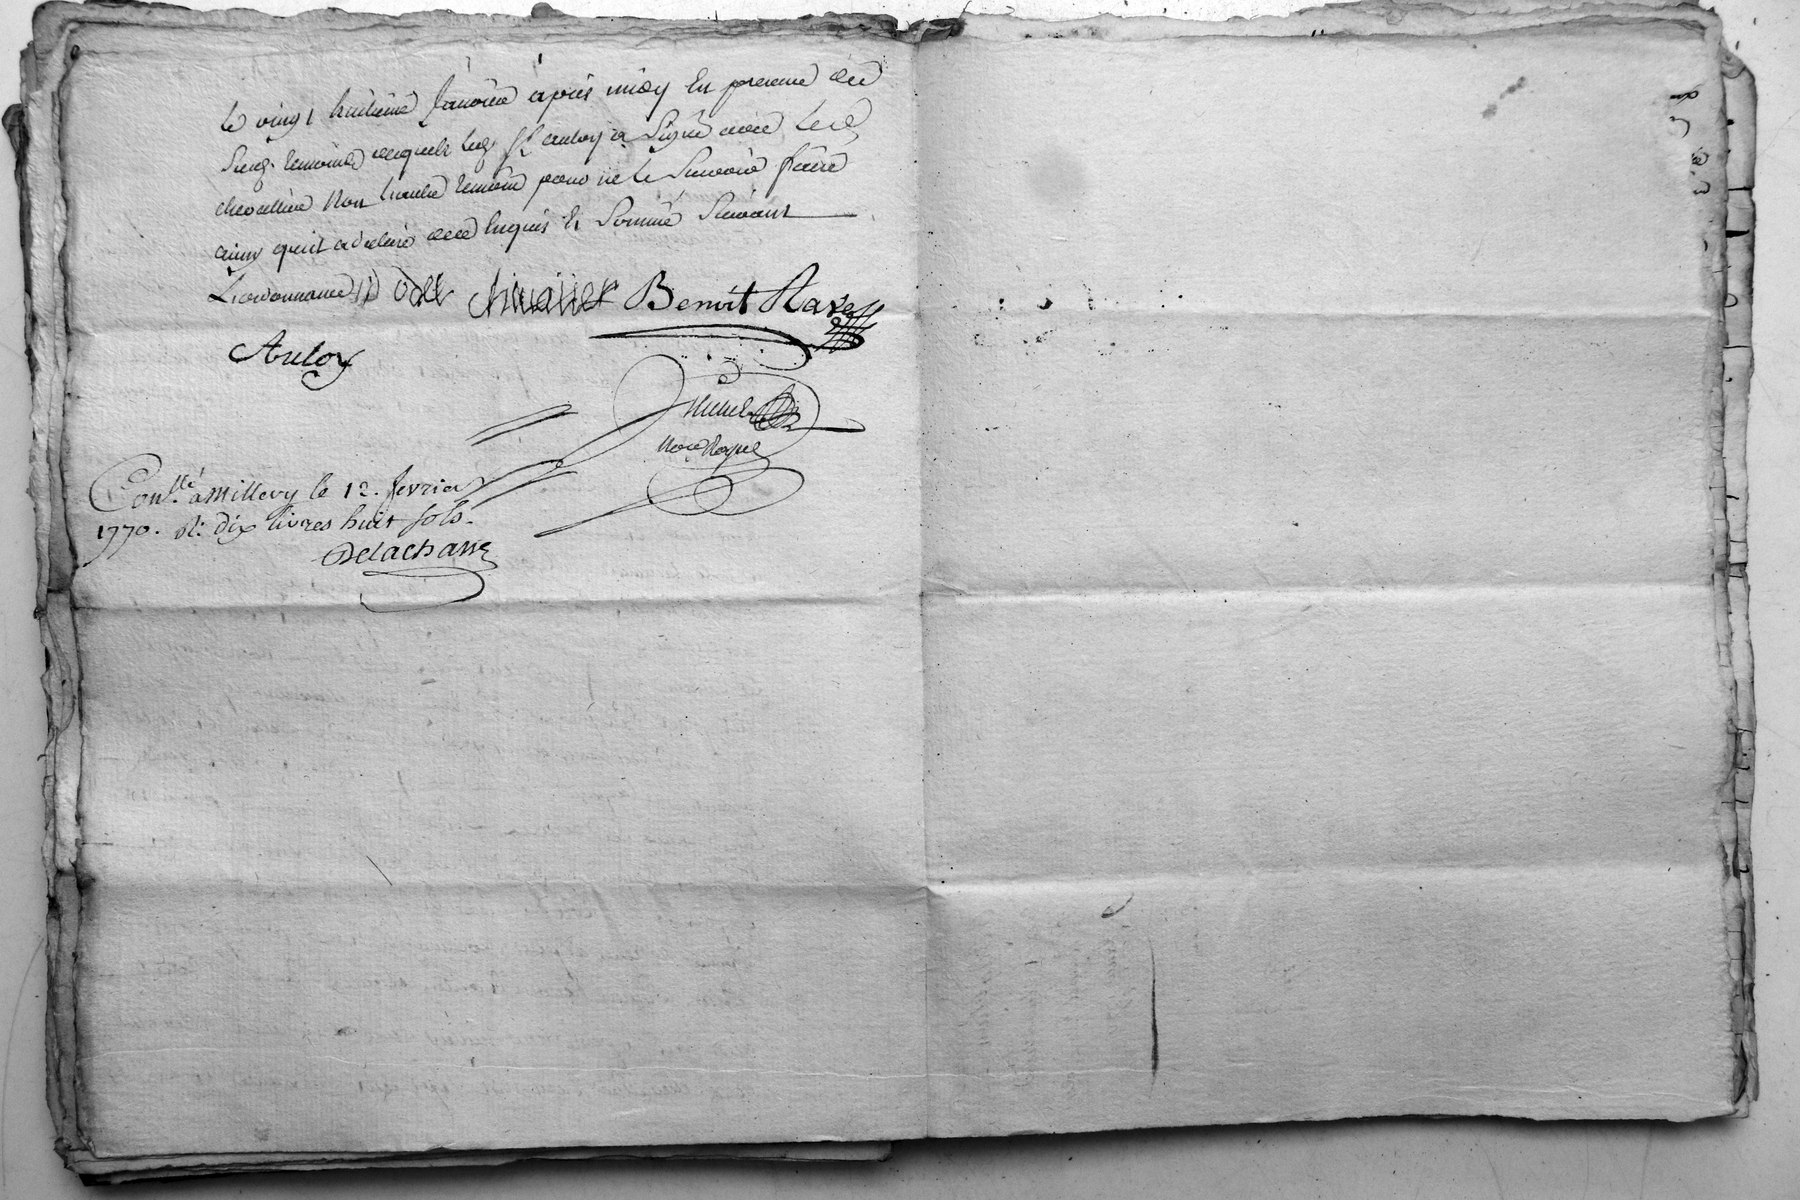 le vingt huitieme janvier après midy En presence des
Susd. temoins lesquels led. Sr. auloy a Signé avec led.
chevallier Non lautre temoin pour ne le Scavoir faire
ainsy quil a declaré de ce Enquis Et Sommé Suivant
Lordonnance chivallier Benoit Ravel
Auloy
Michel
Nore Royal
Conllé. à Millery le 12. fevrier
1770. R: dix livres huit sols.
Delachasse